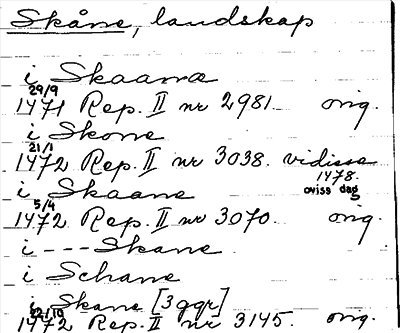 Skåne, landskap
i Skaanæ
29/9
1471 Rep. II nr 2981. orig.
i Skone
21/1
1472 Rep. II nr 3038. vidisse
1478.
i Skaane oviss dag
5/4
1472 Rep. II nr 3070. orig.
i --- Skane
i Schane
i Skane [3 ggr]
22/10
1472 Rep. II nr 3145 orig.